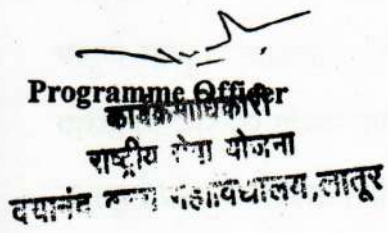 Programme Officer
कार्यक्रमाधिकारी
राष्ट्रीय सेवा योजना
दयानंद महाविद्यालय, लातूर